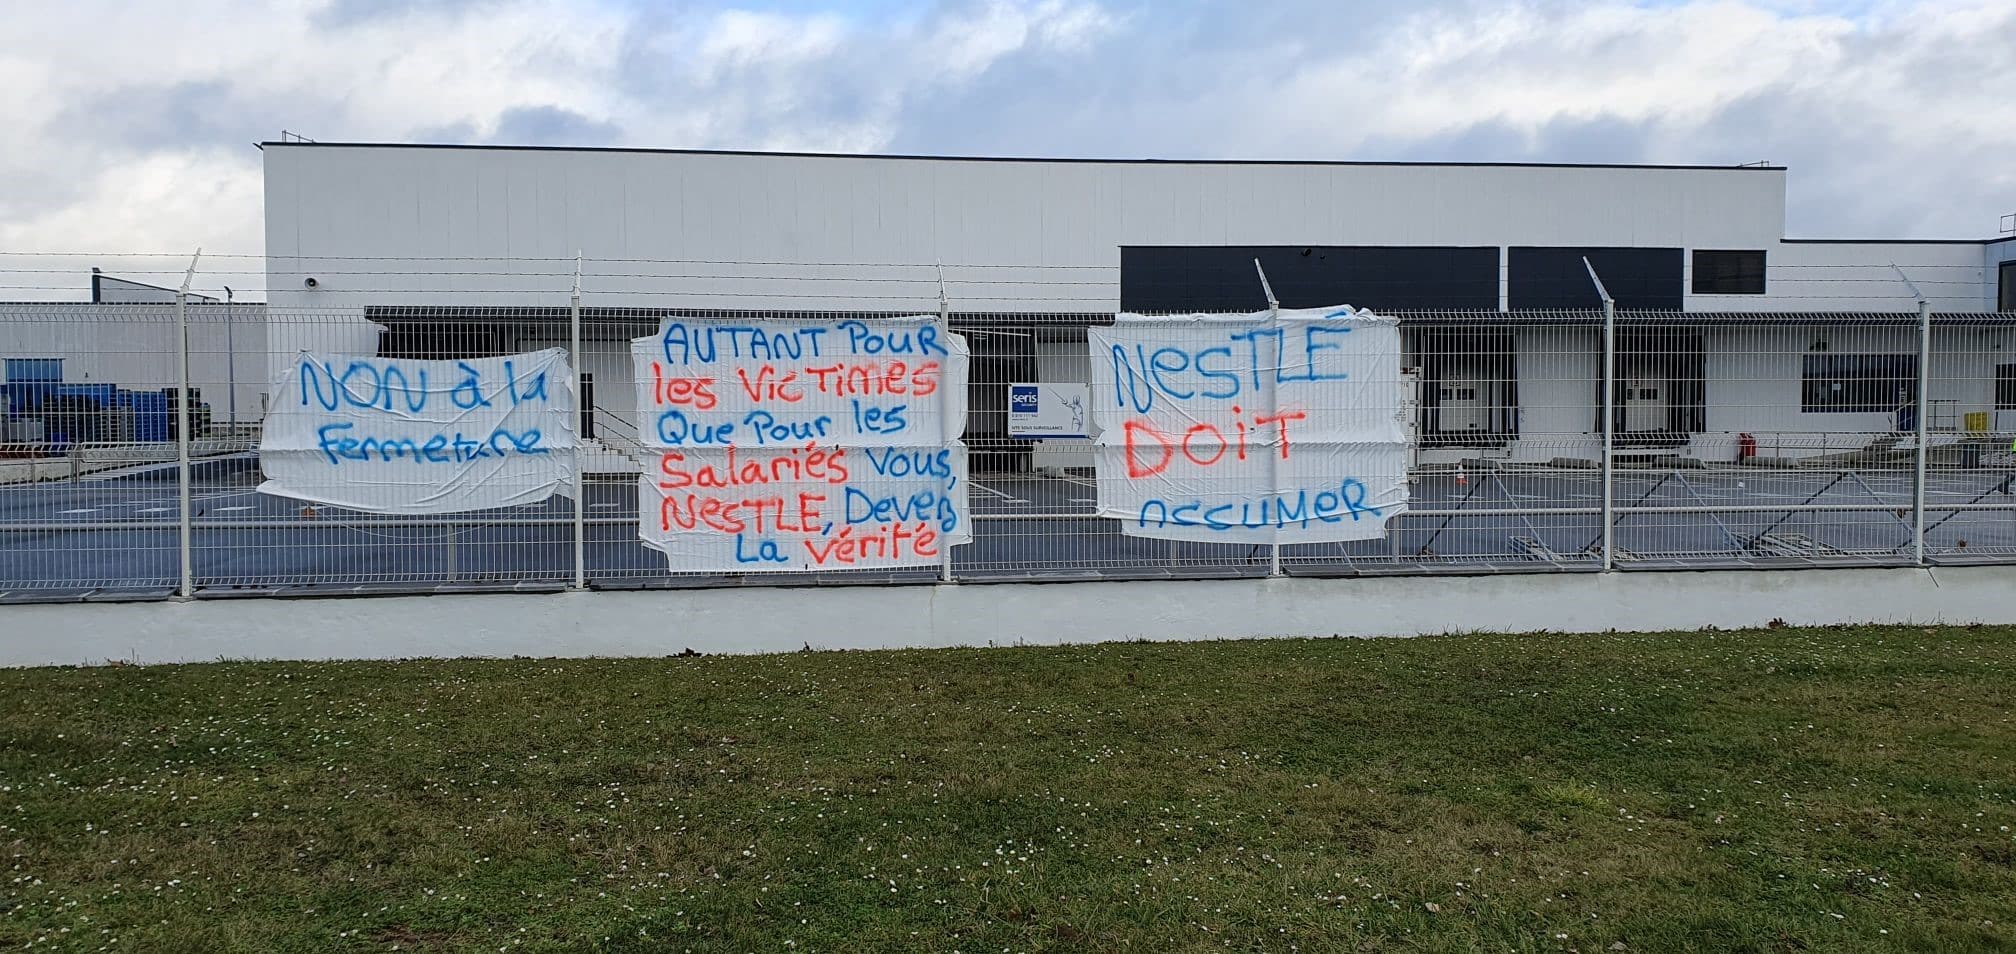 NON à la
Fermeture
AUTANT POUR
les VicTimes
Que Pour les
Salariés Vous,
NESTLE, Devez
La Vérité
seris
SITE SOUS SURVEILLANCE
NesTLÉ
DOiT
ASSUMER